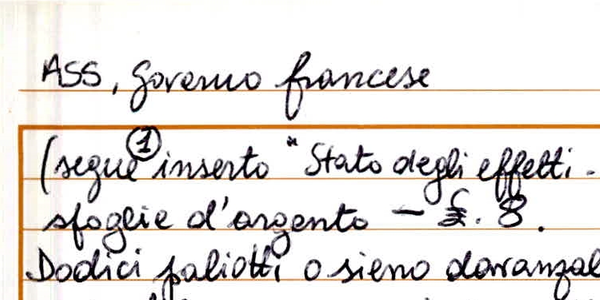 ASS, Governo francese
(segue ① inserto "Stato degli effetti.
sfoglie d'argento — £. 8.
Dodici paliotti o sieno davanzal